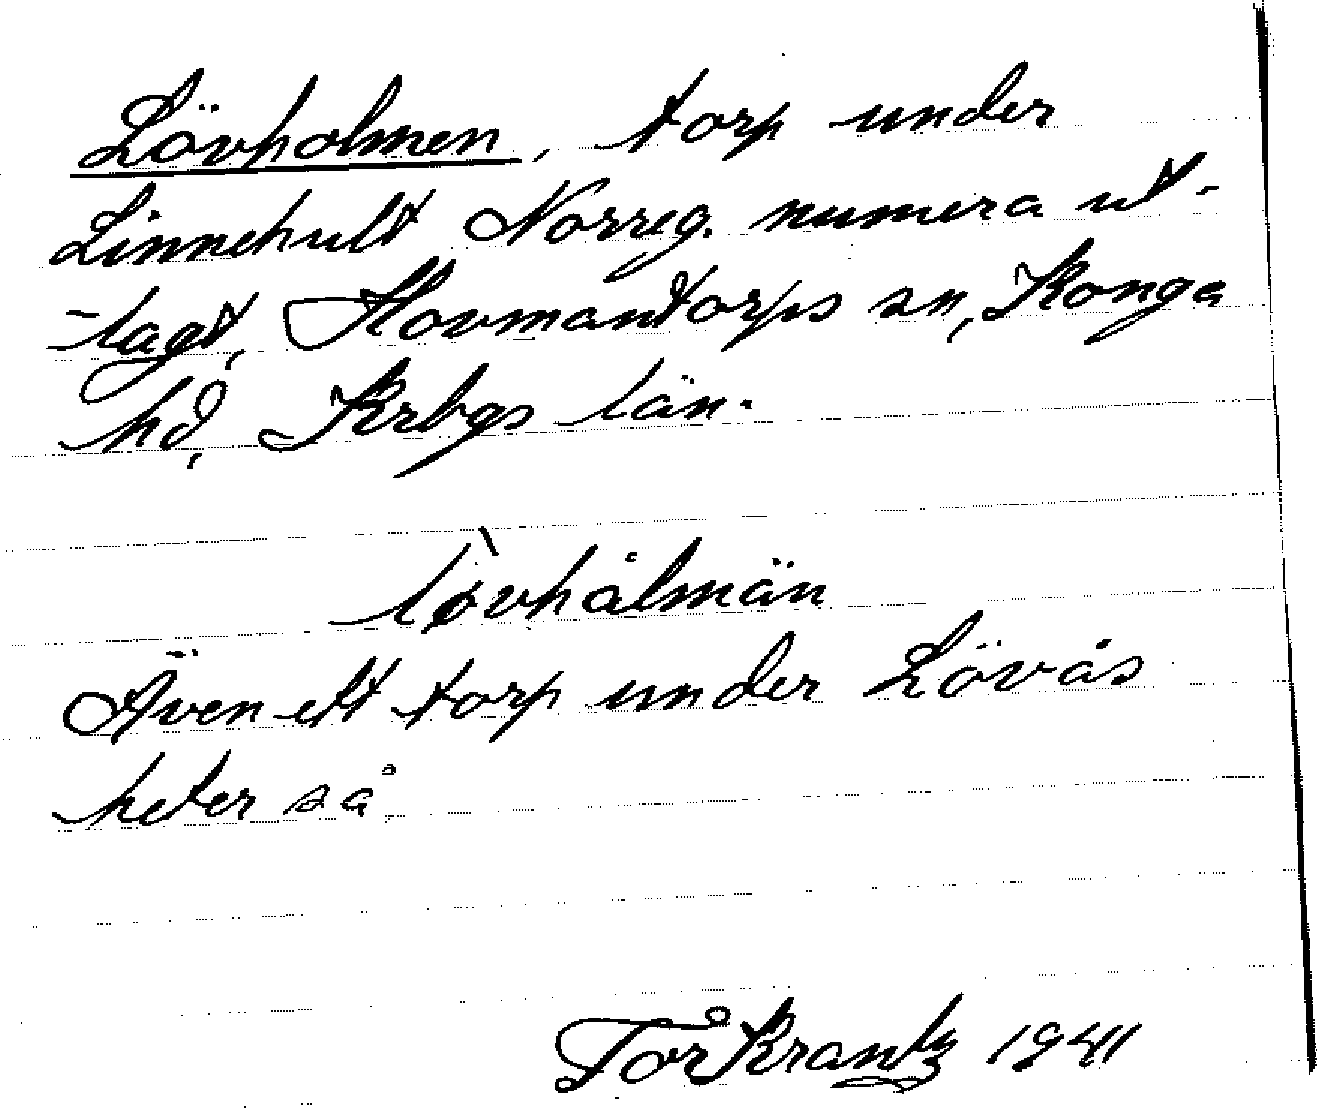 Lövholmen, torp under
Linnehult Norreg. numera ut-
-lagt, Hovmantorps sn, Konga
hd, Krbgs län.
lø̀vhålmän
Även ett torp under Lövås
heter så
Tor Krantz 1941